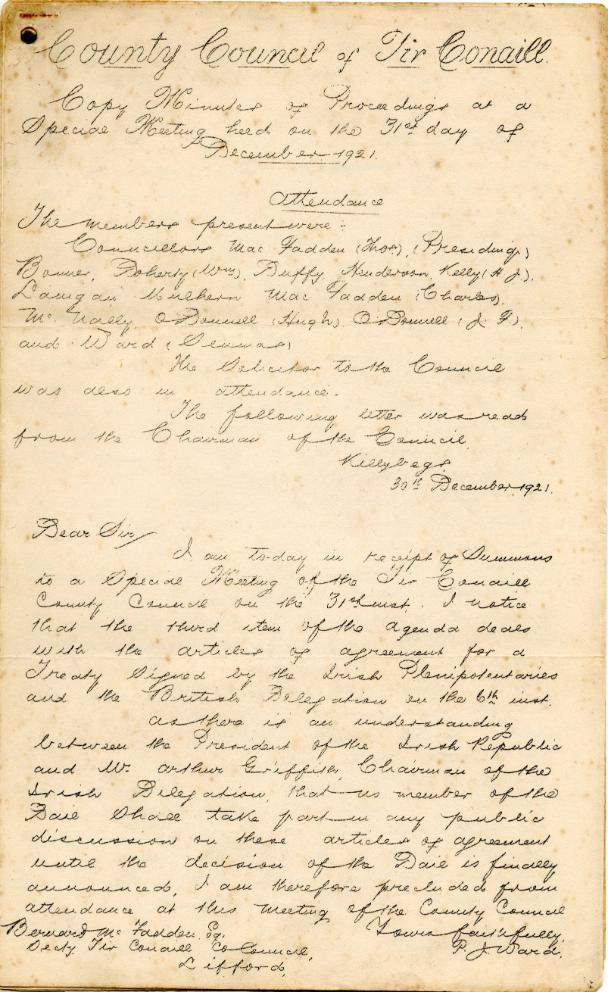 County Council of Tir Conaill
Copy Minutes of Proceedings at a
Special Meeting held on the 31st day of
December 1921.
Attendance
The members present were:
Councillors Mac Fadden (Thos), (Presiding)
Bonner, Doherty (Wm), Duffy Henderson, Kelly (H J),
Langan Mulhern Mac Fadden (Charles),
Mc Nally, O'Donnell (Hugh), O'Donnell (J. F),
and Ward (Seumas)
The Solicitor to the Council
was also in attendance.
The following letter was read
from the Chairman of the Council.
Killybegs,
30th December, 1921.
Dear Sir/
I am to-day in receipt of Summons
to a Special Meeting of the Tir Conaill
County Council on the 31st inst. I notice
that the third item of the agenda deals
with the articles of agreement for a
Treaty signed by the Irish Plenipotentaries
and the British Delegation on the 6th inst.
As there is an understanding
between the President of the Irish Republic
and Mr. Arthur Griffith, Chairman of the
Irish Delegation, that no member of the
Dail shall take part in any public
discussion on these articles of agreement
until the decision of the Dail is finally
announced, I am therefore precluded from
attendance at this meeting of the County Council
Yours faithfully,
P. J. Ward.
Bernard Mc Fadden Esq.
Secty Tir Conaill Co Council,
Lifford.